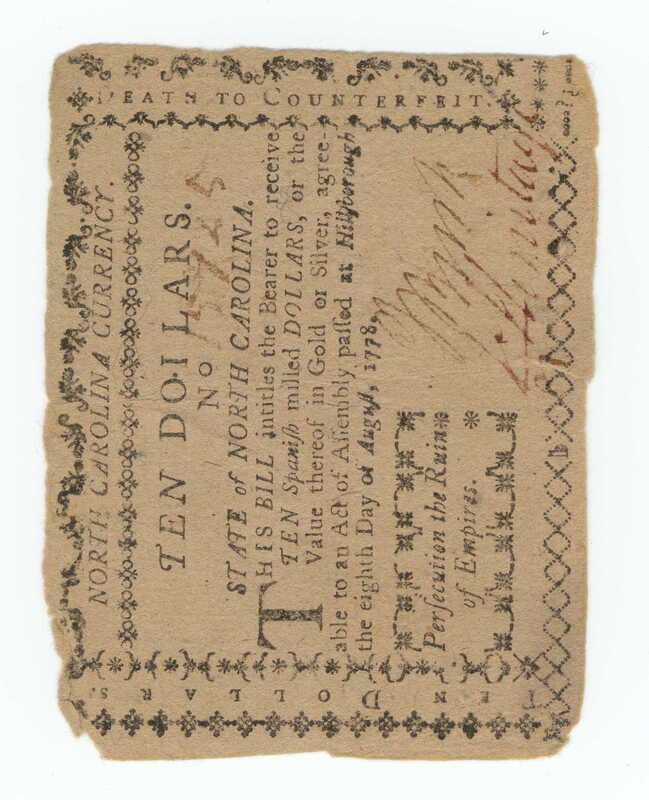 NORTH CAROLINA CURRENCY.
TEN DOLLARS.
No 15725
STATE of NORTH CAROLINA.
THIS BILL intitles the Bearer to receive
TEN Spaniſh milled DOLLARS, or the
Value thereof in Gold or Silver, agree-
able to an Act of Aſſembly paſſed at Hillſborough
the eighth Day of Auguſt, 1778.
Perſecution the Ruin
of Empires.
DEATH TO COUNTERFEIT.
TEN DOLLARS.